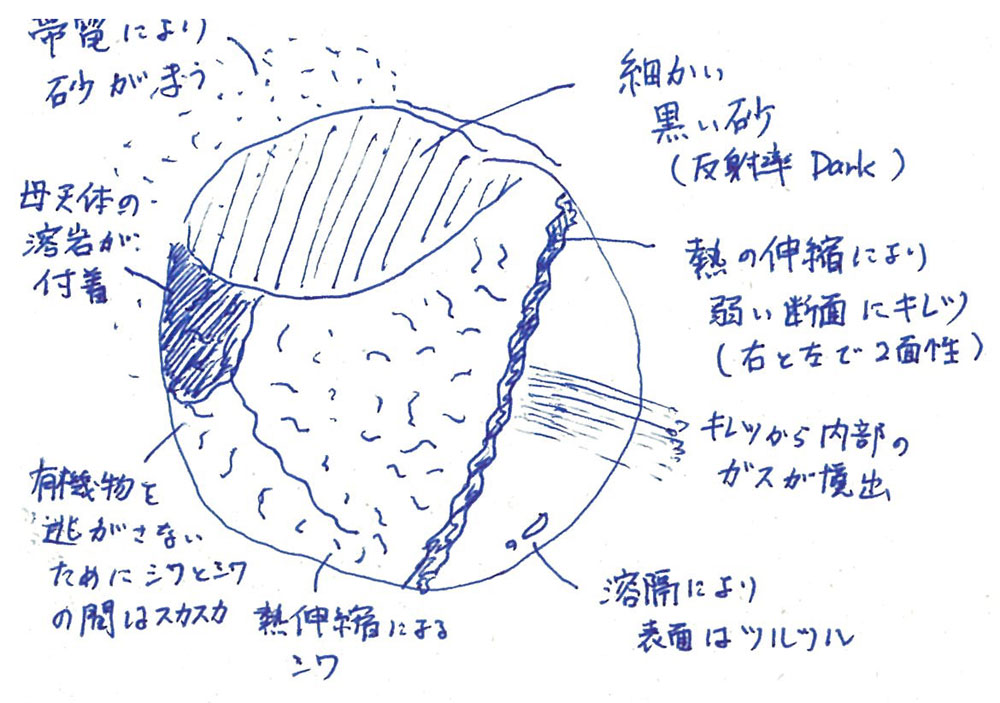 帯電により
砂がまう
細かい
黒い砂
(反射率 Dark)
母天体の
溶岩が
付着
熱の伸縮により
弱い断面にキレツ
(右と左で2面性)
キレツから内部の
ガスが噴出
有機物を
逃がさない
ためにシワとシワ
の間はスカスカ
熱伸縮による
シワ
溶融により
表面はツルツル